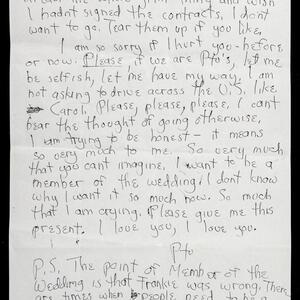 I hadn't signed the contracts, I don't
want to go. Tear them up if you like,
I am so sorry if I hurt you - before
or now. Please, if we are Pto's, let me
be selfish, let me have my way, I am
not asking to drive across the U.S. like
Carol, Please, please, please, I can't
bear the thought of going otherwise,
I am trying to be honest - it means
so very much to me. So very much
that you can't imagine, I want to be a
member of the wedding, I don't know
why I want it so much now. So much
that I am crying. Please give me this
present. I love you, I love you.
Pto
P.S. The point of Member of the
Wedding is that Frankie was wrong. There
are times when people need to be a